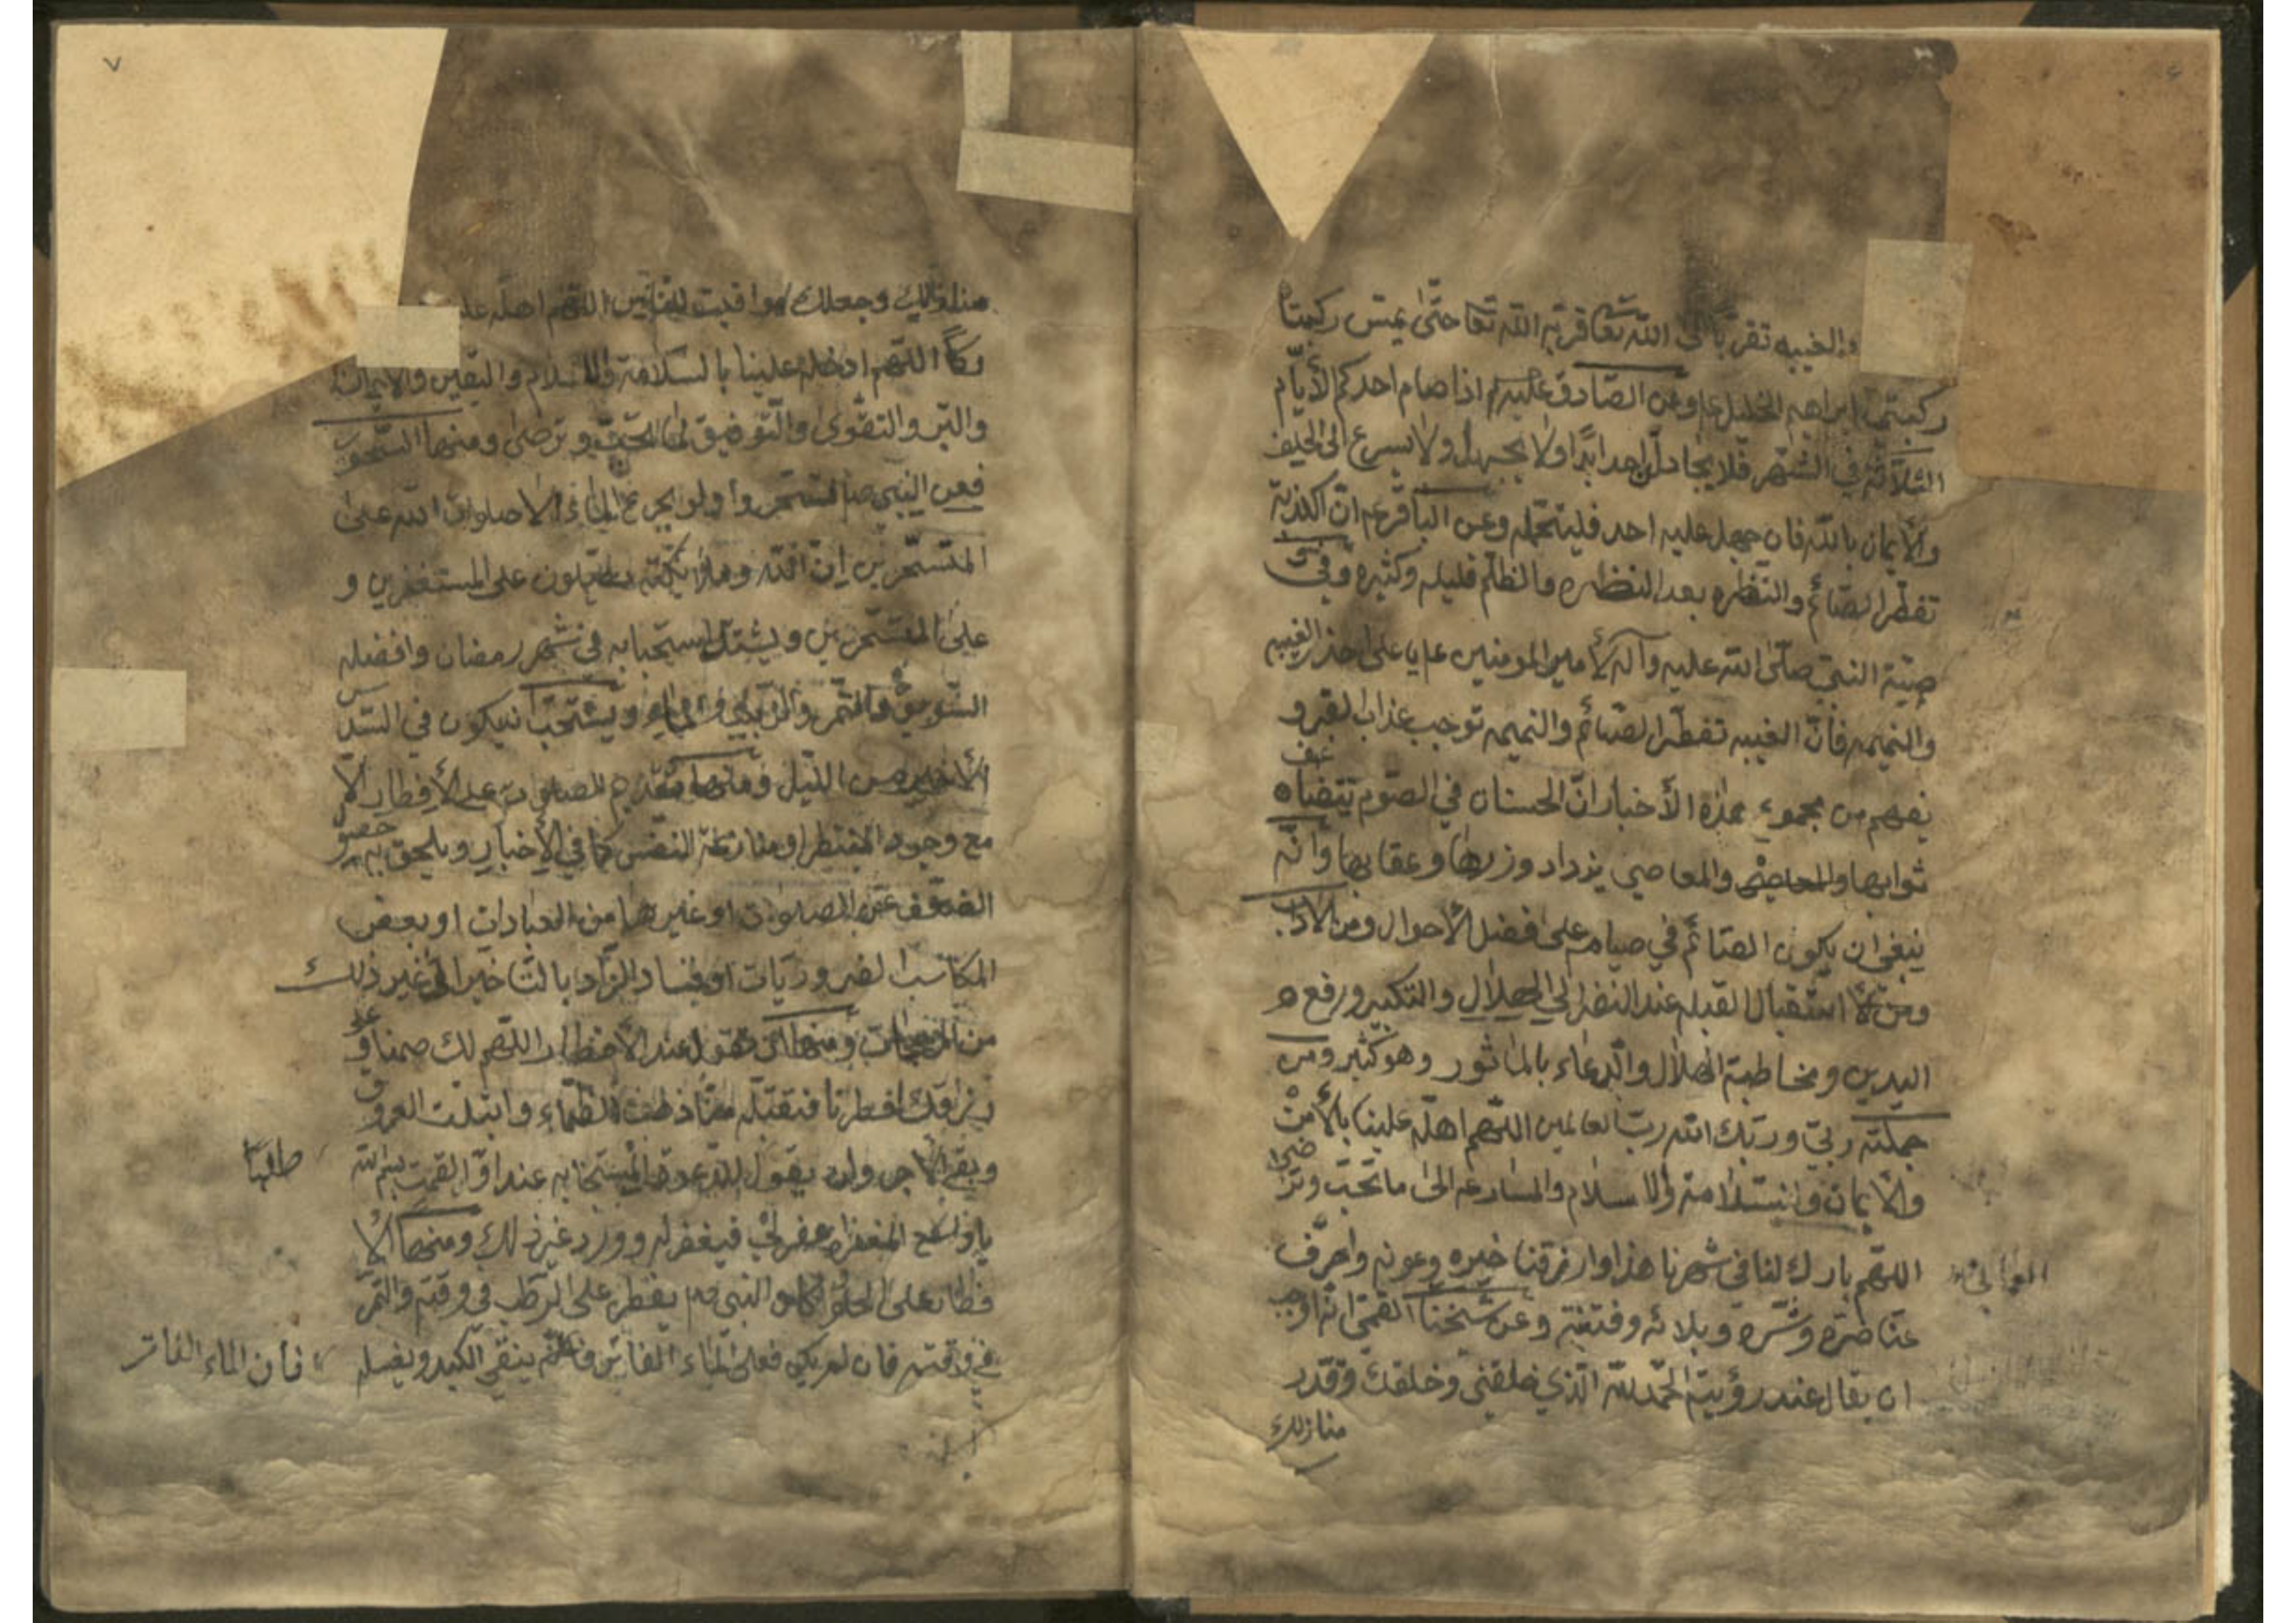 والغيبه تقربا الى الله تعا قربه الله تعا حتى يمس ركبتا
ركبتى ابراهيم الخليل ع وعن الصادق عليه اذا صام احدكم الأيام
الثلاثة في الشهر فلا يجادلن احدا ولا يجهل ولا يسرع الى الحلف
والأيمان بالله فان جهل عليه احد فليتحمله وعن الباقر ع ان الكذبة
تفطر الصائم والنظره بعد النظره والظلم قليله وكثيره وفي
وصية النبي صلى الله عليه وآله لأمير المومنين ع يا على احذر الغيبه
والنميمه فأن الغيبه تفطر الصائم والنميمه توجب عذاب القبر و
يفهم من مجموع هذه الأخبار ان الحسنات في الصوم تتضاعف
ثوابها والمعاصي يزداد وزرها وعقابها وانه
ينبغى ان يكون الصائم في صيامه على افضل الأحوال ومن الاداب
استقبال القبله عند النضر الى الهلال والتكبير ورفع
اليدين ومخاطبة الهلال والدعاء بالماثور وهو كثير ومن
جملته ربي وربك الله رب العالمين اللهم اهله علينا بالأمن
والأيمان والسلامة والاسلام والمسارعه الى ما تحب وترضى
اللهم بارك لنا فى شهرنا هذا وارزقنا خيره وعونه واصرف
عنا ضره وشره وبلائه وفتنته وعن شيخنا القمي انه اوجب
ان يقال عند رؤيته الحمد لله الذي خلقني وخلقك وقدر
منازلك
منازلك وجعلك مواقيت للناس اللهم اهله علينا
اللهم ادخله علينا بالسلامة والاسلام واليقين والايمان
والبر والتقوى والتوفيق لما تحب وترضى ومنها السحور
فعن النبي ص تسحروا ولو بجرع الماء الا صلوات الله على
المتسحرين ان الله وملائكته يصلون على المستغفرين و
على المتسحرين ويشتد استحبابه في شهر رمضان وافضله
السويق والتمر والزبيب والماء ويستحب ان يكون في السدس
الأخير من الليل ومنها تقديم الصلوات على الأفطار الا
مع وجود المنتظر او منازعة النفس كما في الأخبار ويلحق به خصوص
الضعف عن الصلوات او غيرها من العبادات او بعض
المكاسب الضروريات او فساد الزاد بالتاخير الى غير ذلك
من ومنها ان تقول عند الأفطار اللهم لك صمنا و على
رزقك افطرنا فتقبله منا ذهب الظماء وابتلت العروق
وبقى الأجر وان يقول عند اول لقمة بسم الله
يا واسع المغفره اغفر لي فيغفر له وورد غير ذلك ومنها الأ
فطار على الحلو كان النبي ص يفطر على الرطب في وقته والتمر
في وقته فان لم يكن فعلى الماء الفاتر ينقي الكبد ويغسل
فأن الماء الفاتر